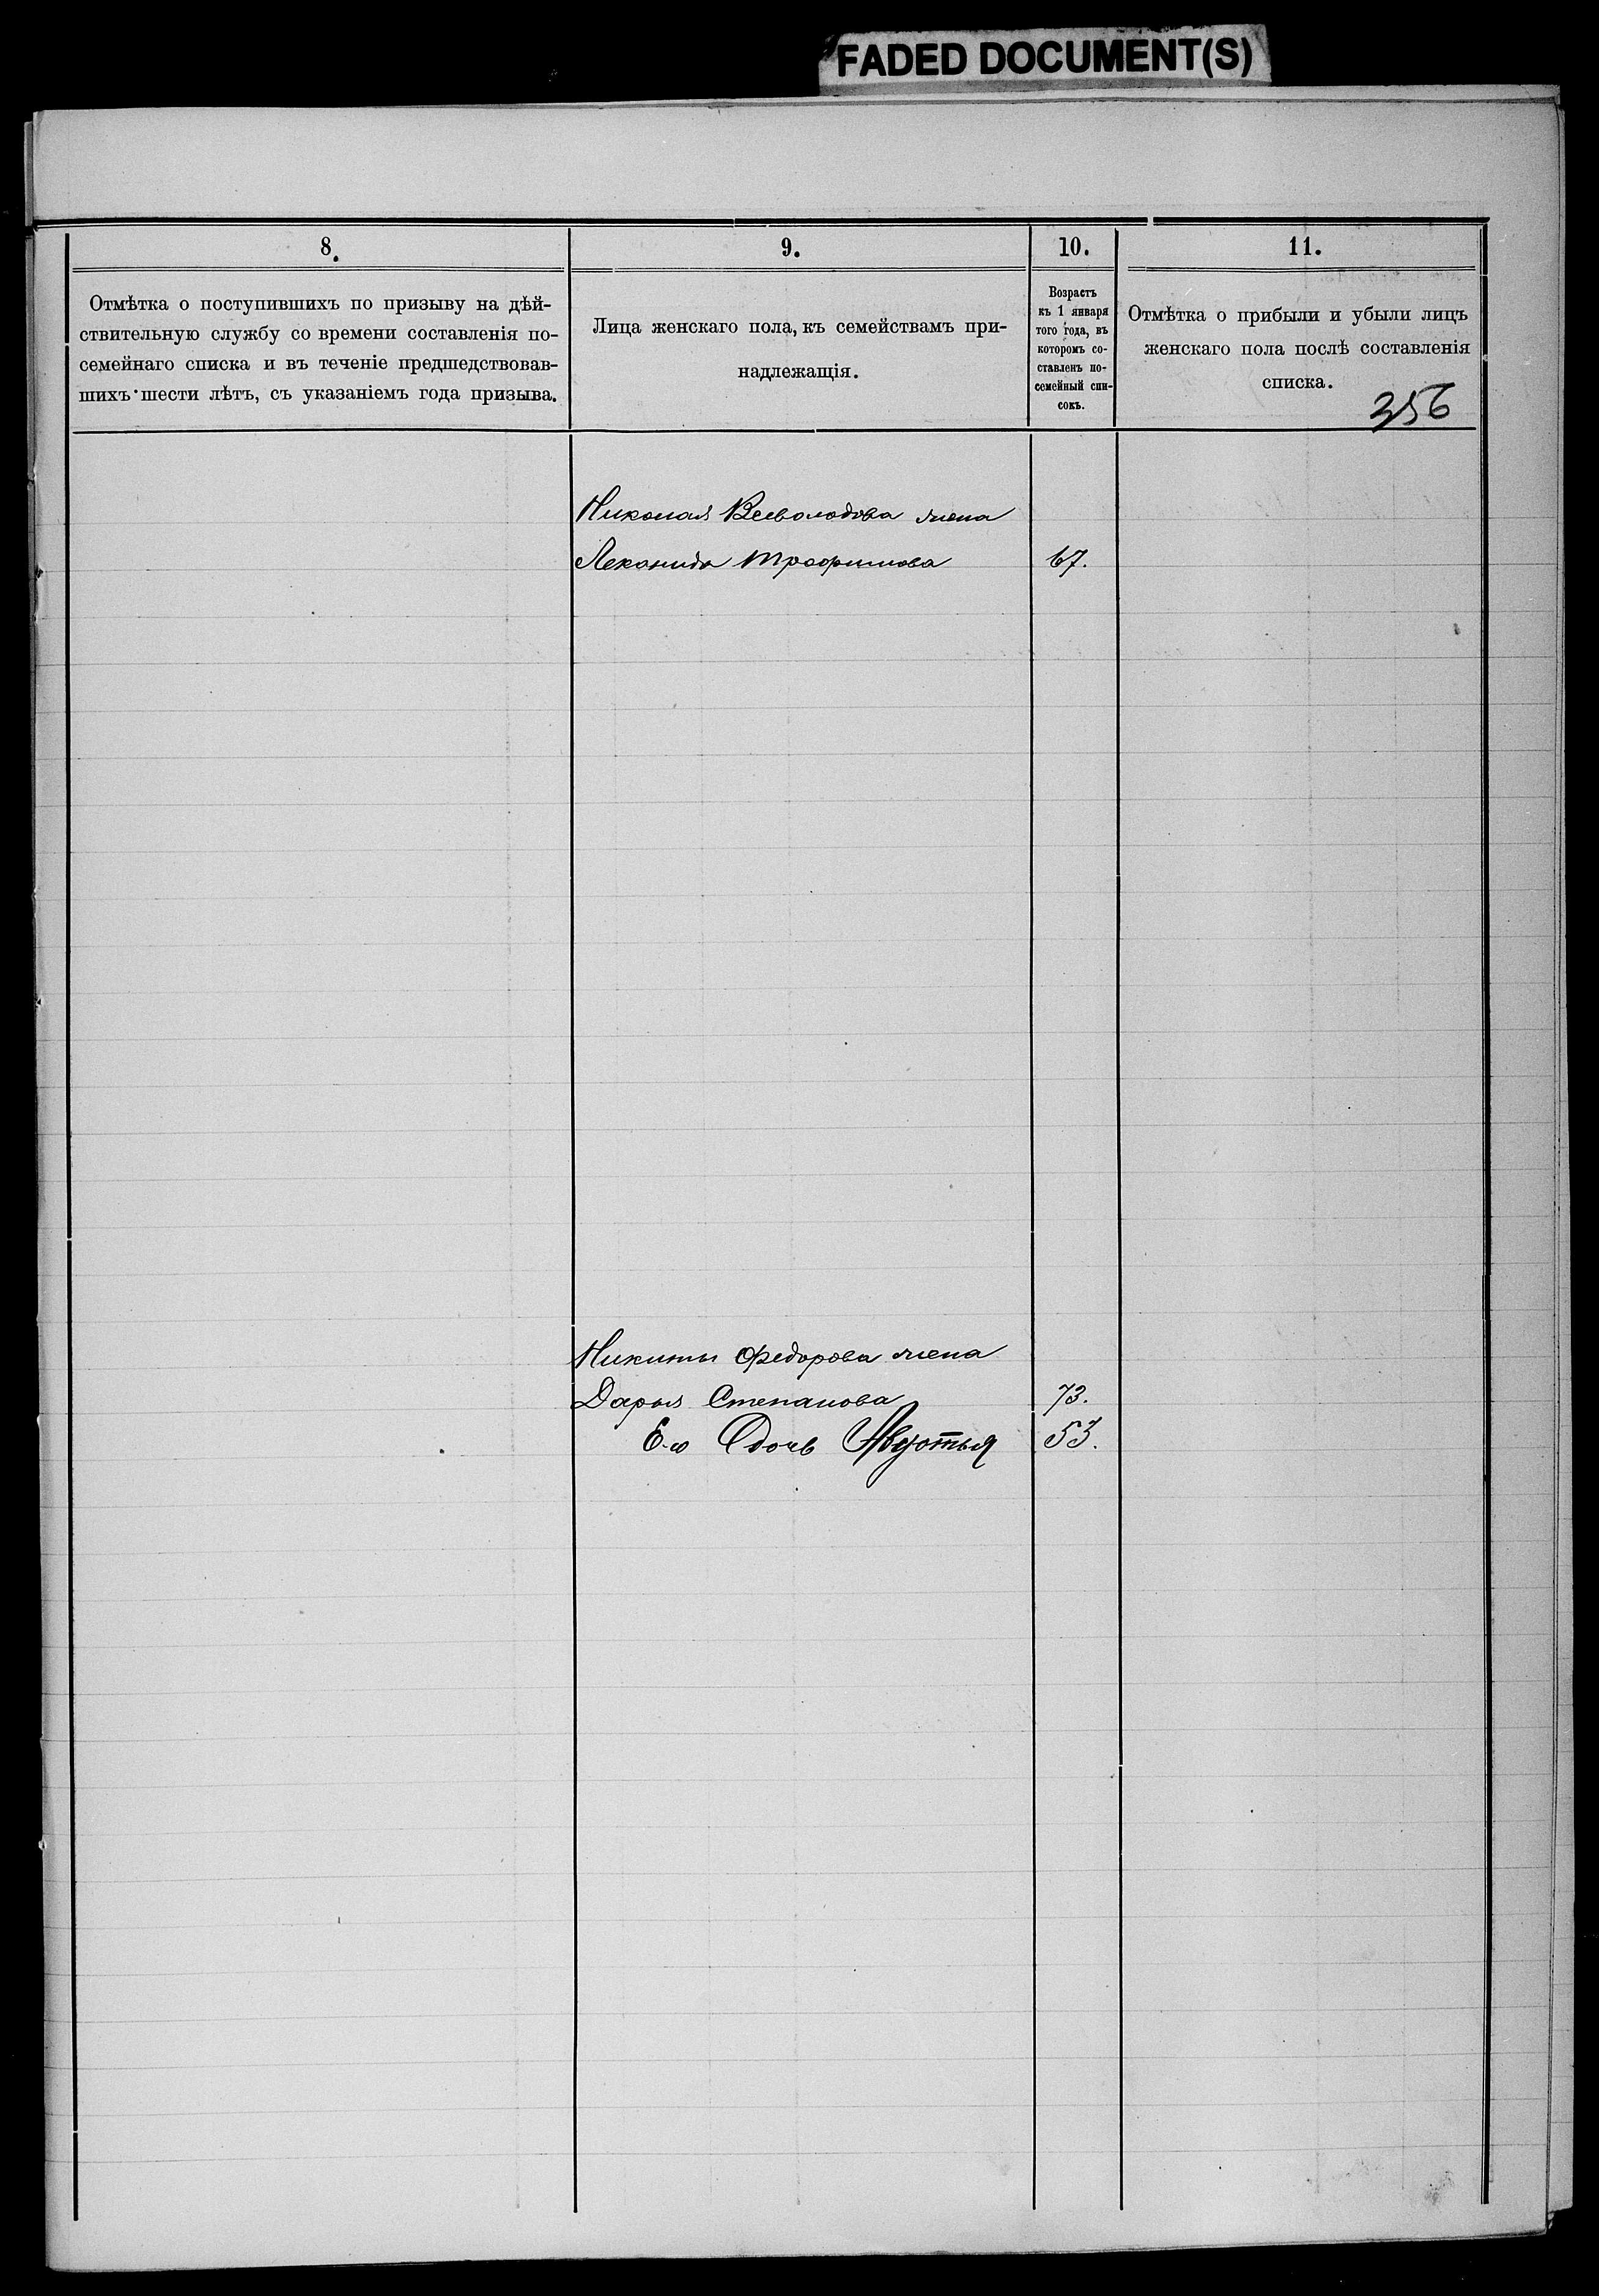 FADED DOCUMENT(S)
8.
9.
10.
11.
Отмѣтка о поступившихъ по призыву на дѣй-
ствительную службу со времени составленія по-
семейнаго списка и въ теченіе предшедствовав-
шихъ шести лѣтъ, съ указаніемъ года призыва.
Лица женскаго пола, къ семействамъ при-
надлежащія.
Возрастъ
къ 1 января
того года, въ
которомъ со-
ставленъ по-
семейный спи-
сокъ.
Отмѣтка о прибыли и убыли лицъ
женскаго пола послѣ составленія
списка.
356
Николая Всеволодова жена
Леконида Трофимова 67.
Никиты Федорова жена
Дарья Степанова 73.
Его дочь Авдотья 53.